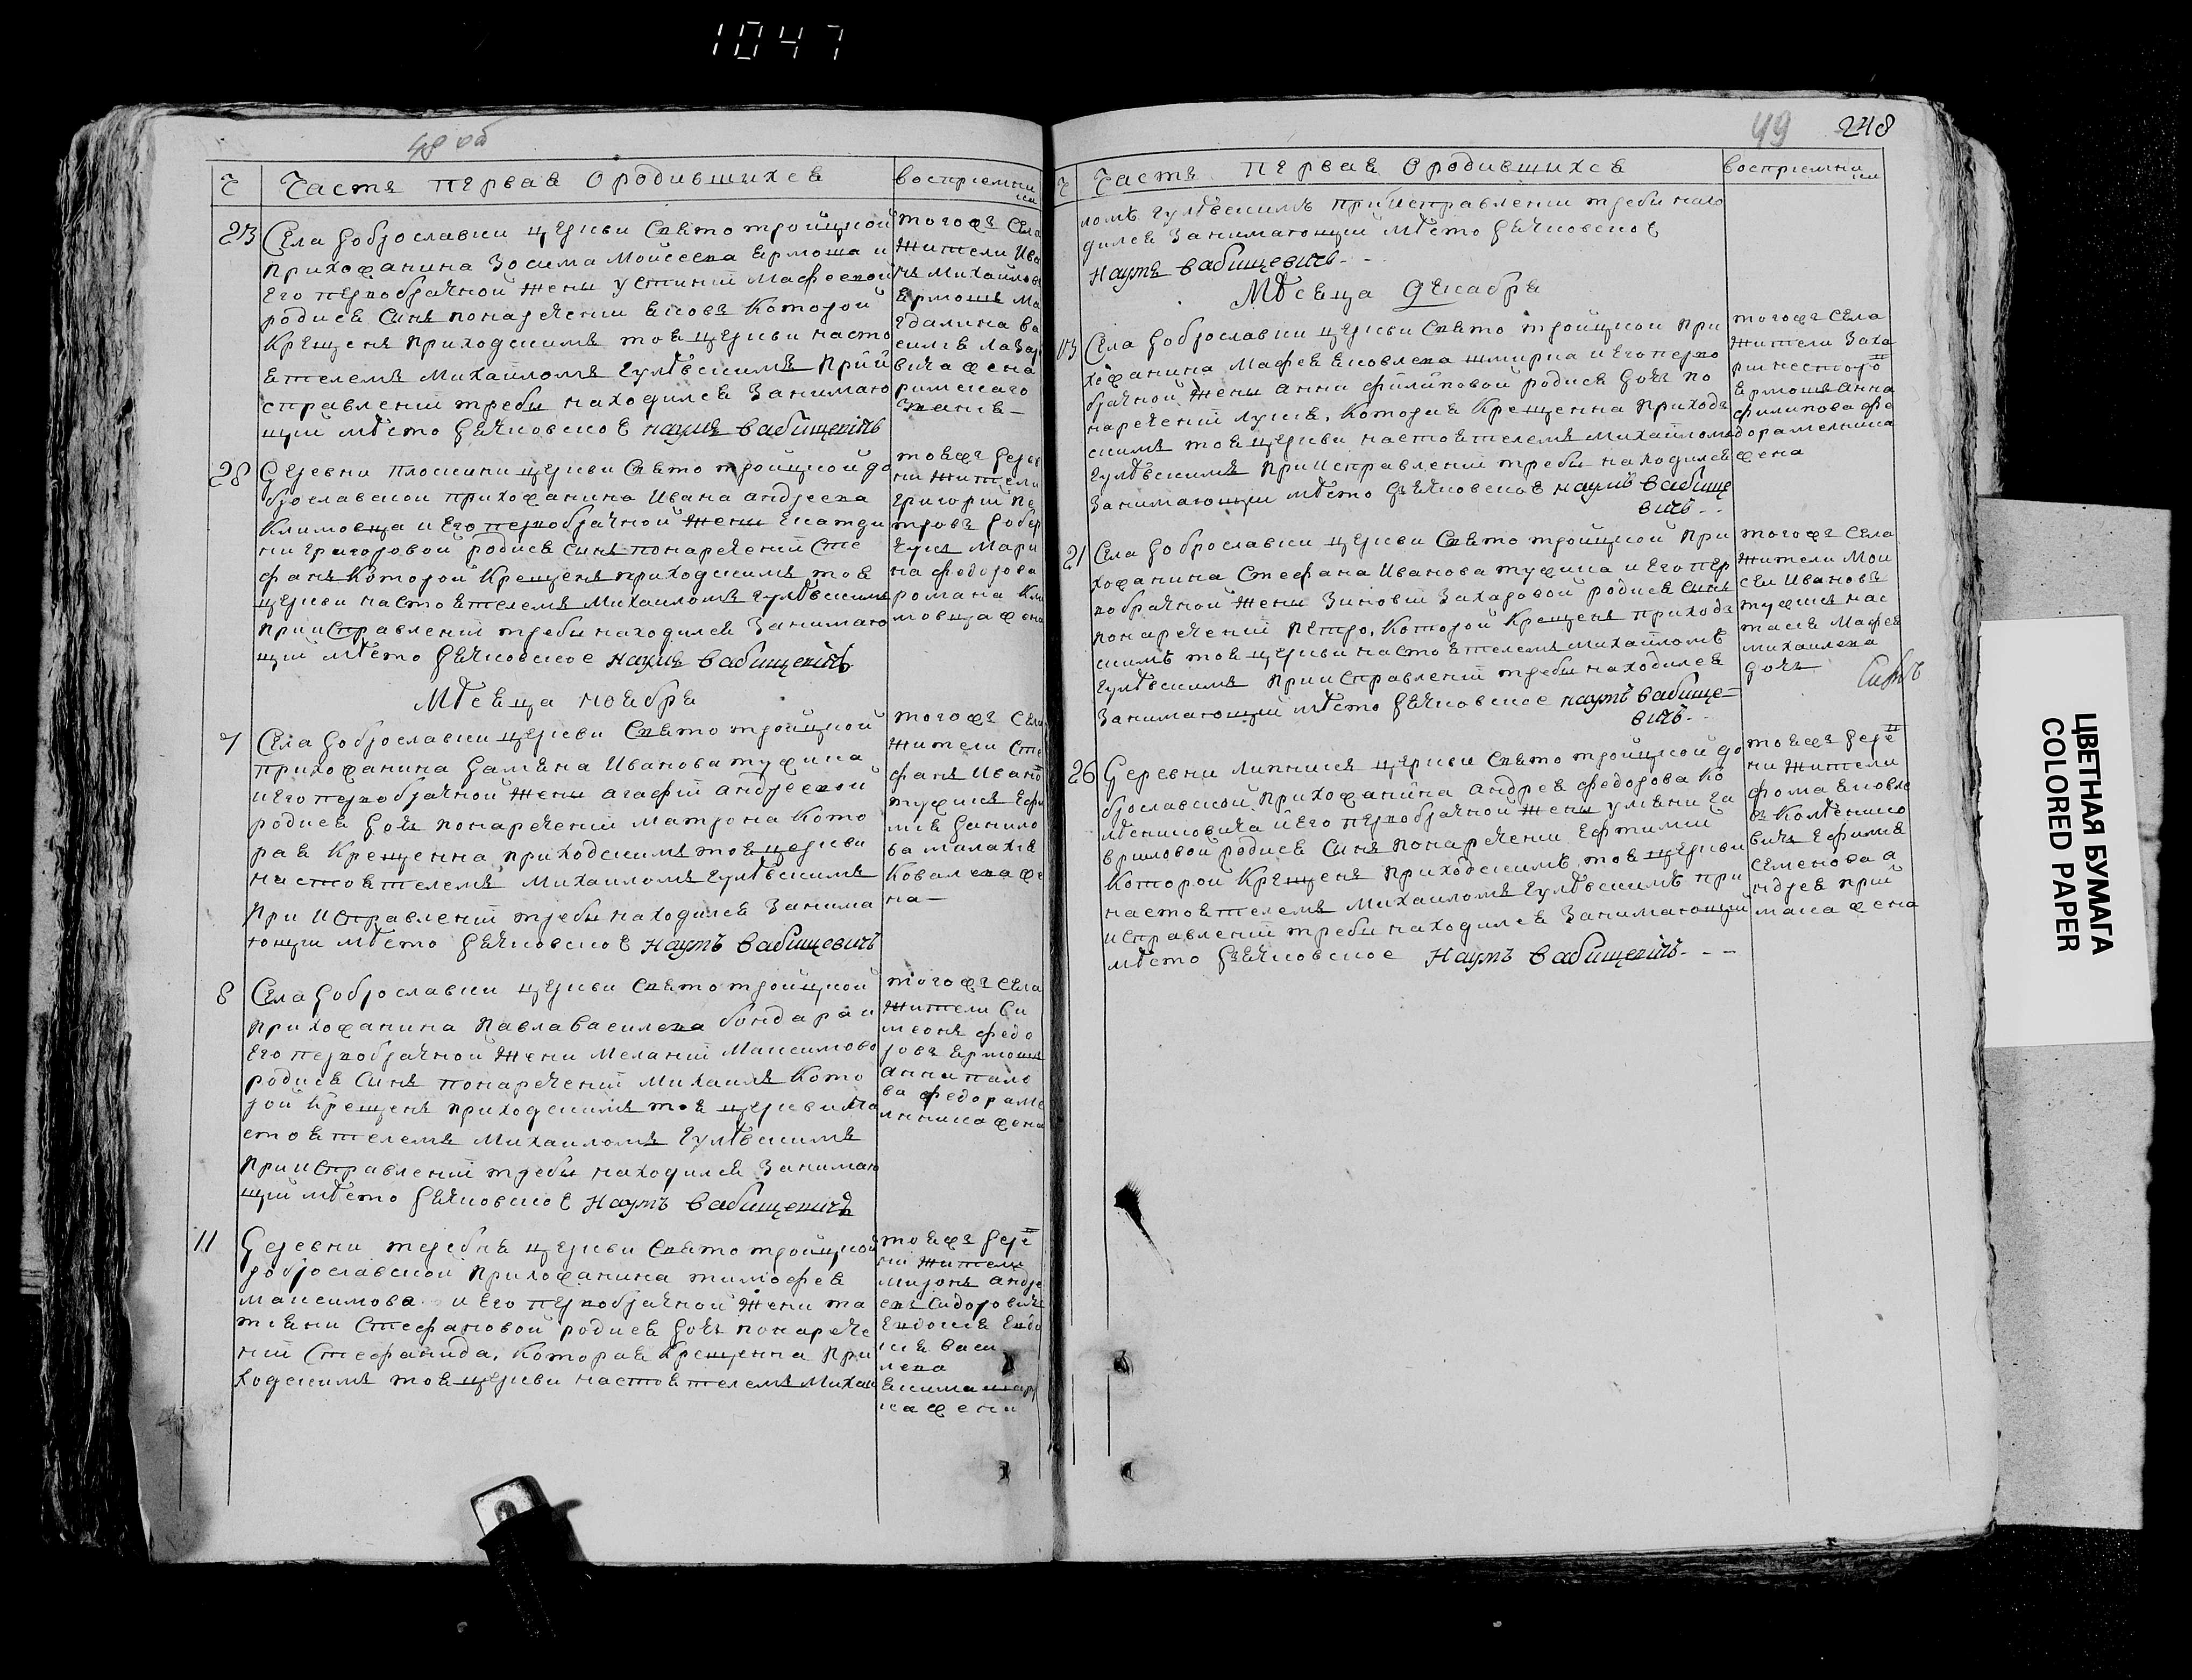 1047
48 об
Ч Часть первая о родившихся воспріемники
23 Села Доброславки церкви Свято тройцкой
прихожанина Зосима Мойсеева Ярмоша и
его первобрачной жены устиніи Мафеевой
родися Сынъ понаречении Яковъ который
Крещенъ приходскимъ тоя церкви насто
ятелемъ Михаиломъ Гулѣвскимъ при и
справленіи требы находился Занимаю
щии мѣсто дьячковское наумъ Бабищевичъ
тогожъ Села
Жители Ива
нъ Михайловъ
Ярмошъ Ма
гдалина ва
силя Лазар
вича жена
римскаго
28 Деревни Плоскини церкви Свято тройцкой до
брославской прихожанина Ивана андреева
Климовца и Его первобрачной Жены Екатери
ни григоровой родися Сынъ понаречении Сте
фанъ Которой Крещенъ приходскимъ тоя
церкви настоятелемъ Михаиломъ Гулѣвскимъ
при исправленіи требы находился Занимаю
щии мѣсто дьячковское наумъ Бабищевичъ
тояжъ дерев
ни Жители
Григорій Пе
тровъ
Мари
на федорова
романа Кли
мовца жена
Мѣсяца ноября
7 Села Доброславки церкви Свято тройцкой
прихожанина Дамяна Иванова тужика
и его первобрачной Жены агафіи андреевой
родися дочь понаречении матрона Кото
рая Крещенна приходскимъ тоя церкви
настоятелемъ Михаиломъ Гулѣвскимъ
при исправленіи требы находился Занима
ющи мѣсто дьячковское наумъ Бабищевичъ
тогожъ Села
Жители Сте
фанъ Ивано
тужикъ Ефи
мія Данило
ва малахія
Ковалева же
на
8 Села Доброславки церкви Свято тройцкой
прихожанина Павла Василева бондара и
Его первобрачной Жены Меланіи Максимово
родися Синъ понаречении Михаилъ Кото
рой Крещенъ приходскимъ тоя церкви На
стоятелемъ Михаиломъ Гулѣвскимъ
при исправленіи требы находился Занимаю
щіи мѣсто дьячковское наумъ Бабищевичъ
тогожъ Села
Жители Си
меонъ федо
ровъ Ярмошъ
Анна павло
ва федора ме
лникажена
11 Деревни теребня церкви Свято тройцкой
доброславской прихожанина тимофея
максимова и Его первобрачной Жены та
тяни Стефановой родися дочь понарече
ніи Стефанида, Которая Крещенна При
ходскимъ тоя церкви настоятелемъ Михаи
тояжъ дере
вни Жители
Миронъ андре
евъ Сидоровичъ
васи
лева
жена
49 248
Ч Часть первая о родившихся воспріемники
ломъ Гулѣвскимъ при исправлении требы нахо
дился Занимающий мѣсто дьячковское
наумъ Бабищевичъ
Мѣсяца Декабря
13 Села Доброславки церкви Свято тройцкой при
хожанина Мафея Яковлева шмирка и Его перво
брачной Жены Анни филиповой родися дочь по
нареченіи лукія, Которая Крещенна приход
скимъ тоя церкви настоятелемъ Михаиломъ
Гулѣвскимъ при исправленіи требы находился
Занимающии мѣсто дьячковское наумъ Бабище
вичъ
тогожъ Села
Жители Заха
рии несторо
Ярмошъ Анна
филипова фе
дора мелника
жена
21 Села Доброславки церкви Свято тройцкой при
хожанина Стефана Иванова тужика и Его пер
вобрачной Жены Зиновіи Захаровой родися Синъ
понаречений Петро, Которой Крещенъ приход
скимъ тоя церкви настоятелемъ Михаиломъ
Гулѣвскимъ при исправленіи требы находился
Занимающий мѣсто дьячковское наумъ Бабище
вичъ
тогожъ Села
Жители Мои
сеи Ивановъ
тужикъ нас
тасія Мафея
михалева
дочь
26 Деревни липники церкви Свято тройцкой до
брославской прихожанина андрея федорова Ко
лѣнковича и Его первобрачной Жены уляни га
вриловой родися Синъ понаречении Ефтимии
Которой Крещенъ приходскимъ тоя церкви
настоятелемъ Михаиломъ Гулѣвскимъ при
исправленіи требы находился Занимающии
мѣсто дьячковское Наумъ Бабищевичъ
тояжъ дере
вни Жители
фома яковле
въ Колѣнко
вичъ Ефимія
Семенова а
ндрея прий
мака жена
ЦВЕТНАЯ БУМАГА
COLORED PAPER